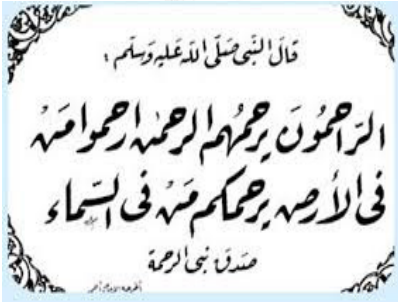 قَالَ النَّبِي صَلَّى اللهُ عَلَيْهِ وَسَلَّم :
الرَّاحِمُونَ يَرحَمُهُم الرحمٰن ارحموا مَنْ
فِى الأرضِ يرحمكم مَنْ فِى السَّماء
صَدَقَ نَبِى الرحمة